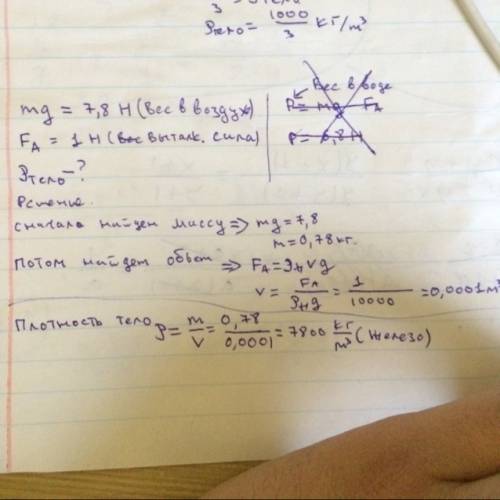 3
ρтело = 1000/3 кг/м³
mg = 7,8 Н (вес в воздух)
F_A = 1 Н (вес выталк. сила)
ρтело - ?
Вес в воде
P = mg - F_A
P = 6,8 Н
Решение.
сначала найдем массу => mg = 7,8
m = 0,78 кг.
Потом найдет объем => F_A = ρжVg
V = F_A/ρжg = 1/10000 = 0,0001 м³
Плотность тело ρ = m/V = 0,78/0,0001 = 7800 кг/м³ (железо)